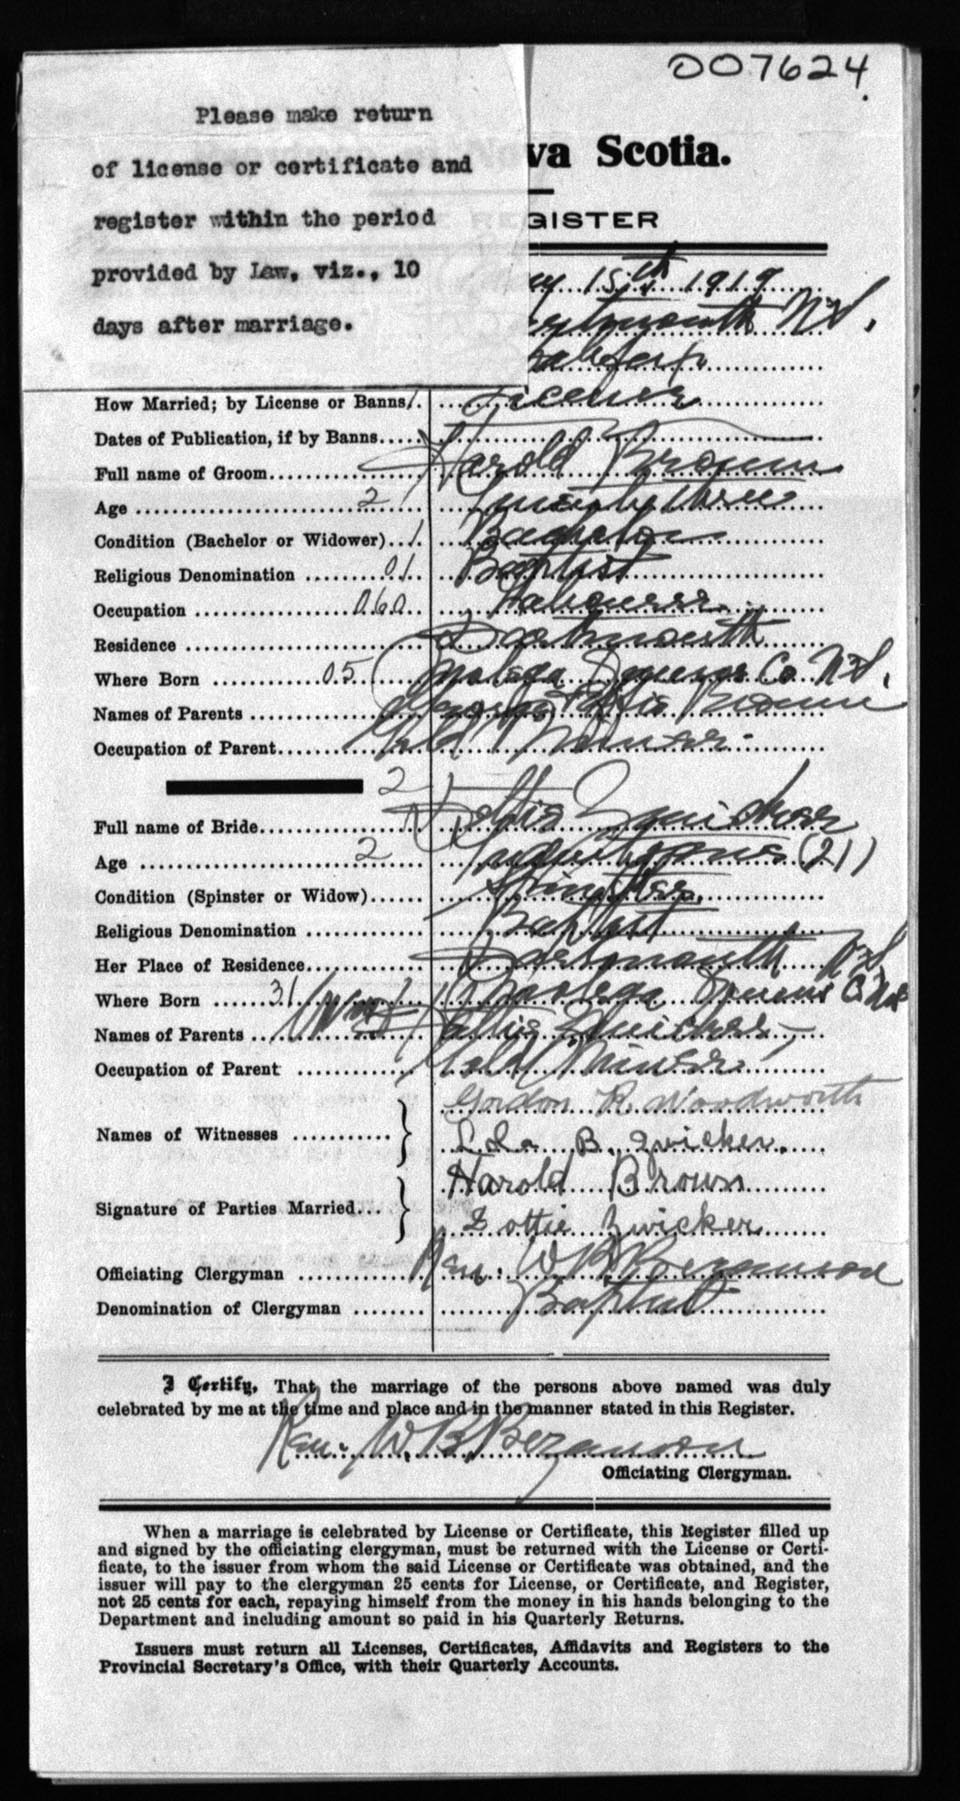 007624
Please make return
of license or certificate and
register within the period
provided by Law, viz., 10
days after marriage.
va Scotia.
GISTER
15th 1919
artmouth N.S.
Halifax
How Married; by License or Banns 1 License
Dates of Publication, if by Banns
Full name of Groom Harold Brown
Age 2 Twenty three
Condition (Bachelor or Widower) 1 Bachelor
Religious Denomination 01 Baptist
Occupation 060 Labourer
Residence Dartmouth
Where Born 05 Molega Queens Co N.S.
Names of Parents George Brown
Occupation of Parent Gold Miner
2
Full name of Bride Lottie Zwicker
Age 2 Twenty one (21)
Condition (Spinster or Widow) Spinster
Religious Denomination Baptist
Her Place of Residence Dartmouth N.S.
Where Born 31 Molega Queens Co N.S.
Names of Parents Zwicker
Occupation of Parent Gold Miner
Gordon R. Woodworth
Names of Witnesses
Lola B. Zwicker.
Harold Brown
Signature of Parties Married
Lottie Zwicker
Officiating Clergyman Rev. W. B. Bezanson
Denomination of Clergyman Baptist
I Certify, That the marriage of the persons above named was duly
celebrated by me at the time and place and in the manner stated in this Register.
Rev. W. B. Bezanson
Officiating Clergyman.
When a marriage is celebrated by License or Certificate, this Register filled up
and signed by the officiating clergyman, must be returned with the License or Certi-
ficate, to the issuer from whom the said License or Certificate was obtained, and the
issuer will pay to the clergyman 25 cents for License, or Certificate, and Register,
not 25 cents for each, repaying himself from the money in his hands belonging to the
Department and including amount so paid in his Quarterly Returns.
Issuers must return all Licenses, Certificates, Affidavits and Registers to the
Provincial Secretary's Office, with their Quarterly Accounts.